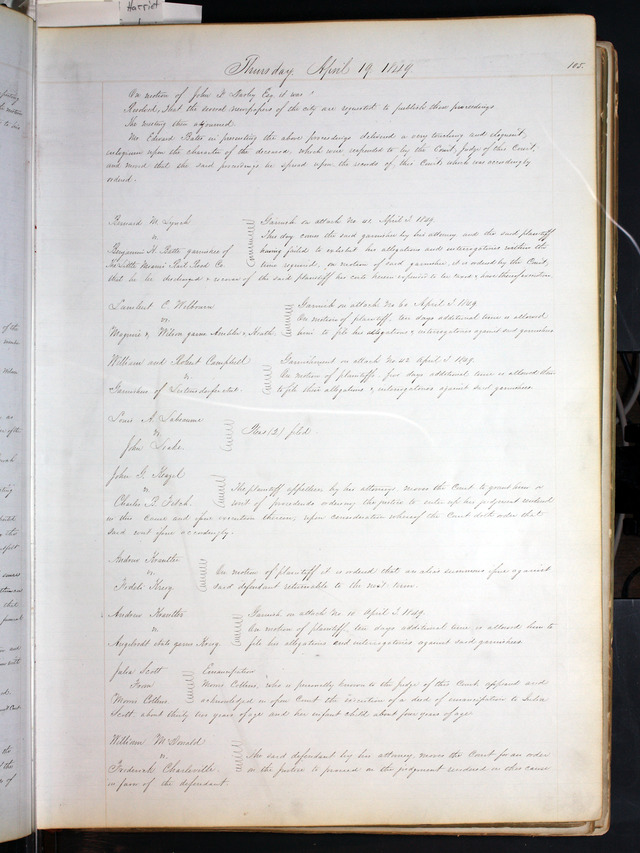 Harriet
Thursday April 19 1849.
105.
On motion of John F. Darby Esq. it was
Resolved, That the several newspapers of the city are requested to publish these proceedings
The meeting then adjourned.
Mr Edward Bates in presenting the above proceedings delivered a very touching and eloquent
eulogium upon the character of the deceased, which were responded to by the Court, Judge of this Court,
and moved that the said proceedings be spread upon the records of this Court which was accordingly
ordered.
Bernard M. Lynch
vs
Benjamin H. Batte garnishee of
that he be discharged & recover of the said plaintiff his costs herein
Garnish on attach No 42 April T. 1849
This day comes the said garnishee by his attorney and the said plaintiff
having failed to exhibit his allegations and interrogatories within the
time required, on motion of said garnishee, it is ordered by the Court,
Lambert C. Welbourn
vs.
Garnish on attach No 60 April T. 1849
On motion of plaintiff ten days additional time is allowed
him to file his allegations & interrogatories against said garnishee
William and Robert Campbell
vs
Garnishees of
Garnishment on attach No 42 April T. 1849.
On motion of plaintiffs four days additional time is allowed them
to file their allegations & interrogatories against said garnishees.
Louis A. Labeaume
vs
John Leake.
Pleas (2) filed.
John G.
vs
Charles B. Fitch.
The plaintiff appellee by his attorney, moves the Court to grant him a
writ of procedendo ordering the justice to enter up his judgment rendered
in this cause and issue execution thereon, upon consideration whereof the Court doth order that
said writ issue accordingly.
Andrew
vs.
Fidele
On motion of plaintiff it is ordered that an alias summons issue against
said defendant returnable to the next term.
Andrew
vs.
Garnish on attach No 10 April T. 1849.
On motion of plaintiff, ten days additional time, is allowed him to
file his allegations and interrogatories against said garnishees.
Julia Scott
From
Morris Collins.
Emancipation
Morris Collins, who is personally known to the Judge of this Court, appears and
acknowledged in open Court the execution of a deed of emancipation to Julia
Scott about thirty two years of age and her infant child about four years of age
William McDonald
vs.
Frederick Charleville.
The said defendant by his attorney, moves the Court for an order
on the justice to proceed on the judgment rendered in this cause
in favor of the defendant.